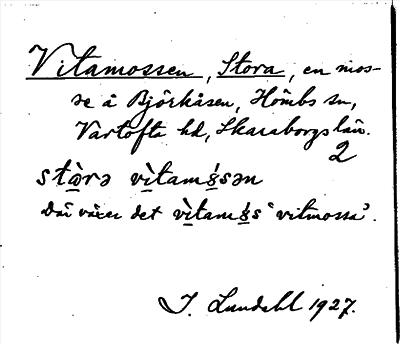 Vitamossen, Stora, en mos-
se å Björkåsen, Hömbs sn,
Vartofta hd, Skaraborgs län.
2
stɑ̀rə vìtamɷ́sən
Där växer det vìtamɷ́s 'vitmossa'.
I. Lundahl 1927.